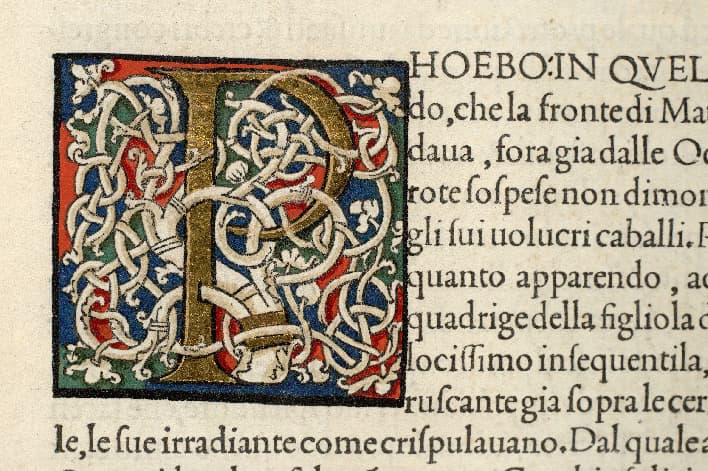 P
HOEBO:IN QVEL
do,che la fronte di Ma
daua , fora gia dalle Oc
rote ſoſpeſe non dimor
gli ſui uolucri caballi.
quanto apparendo , ac
quadrige della figliola
lociſſimo inſequentila,
ruſcante gia ſopra le cer
le,le ſue irradiante come criſpulauano. Dal quale a